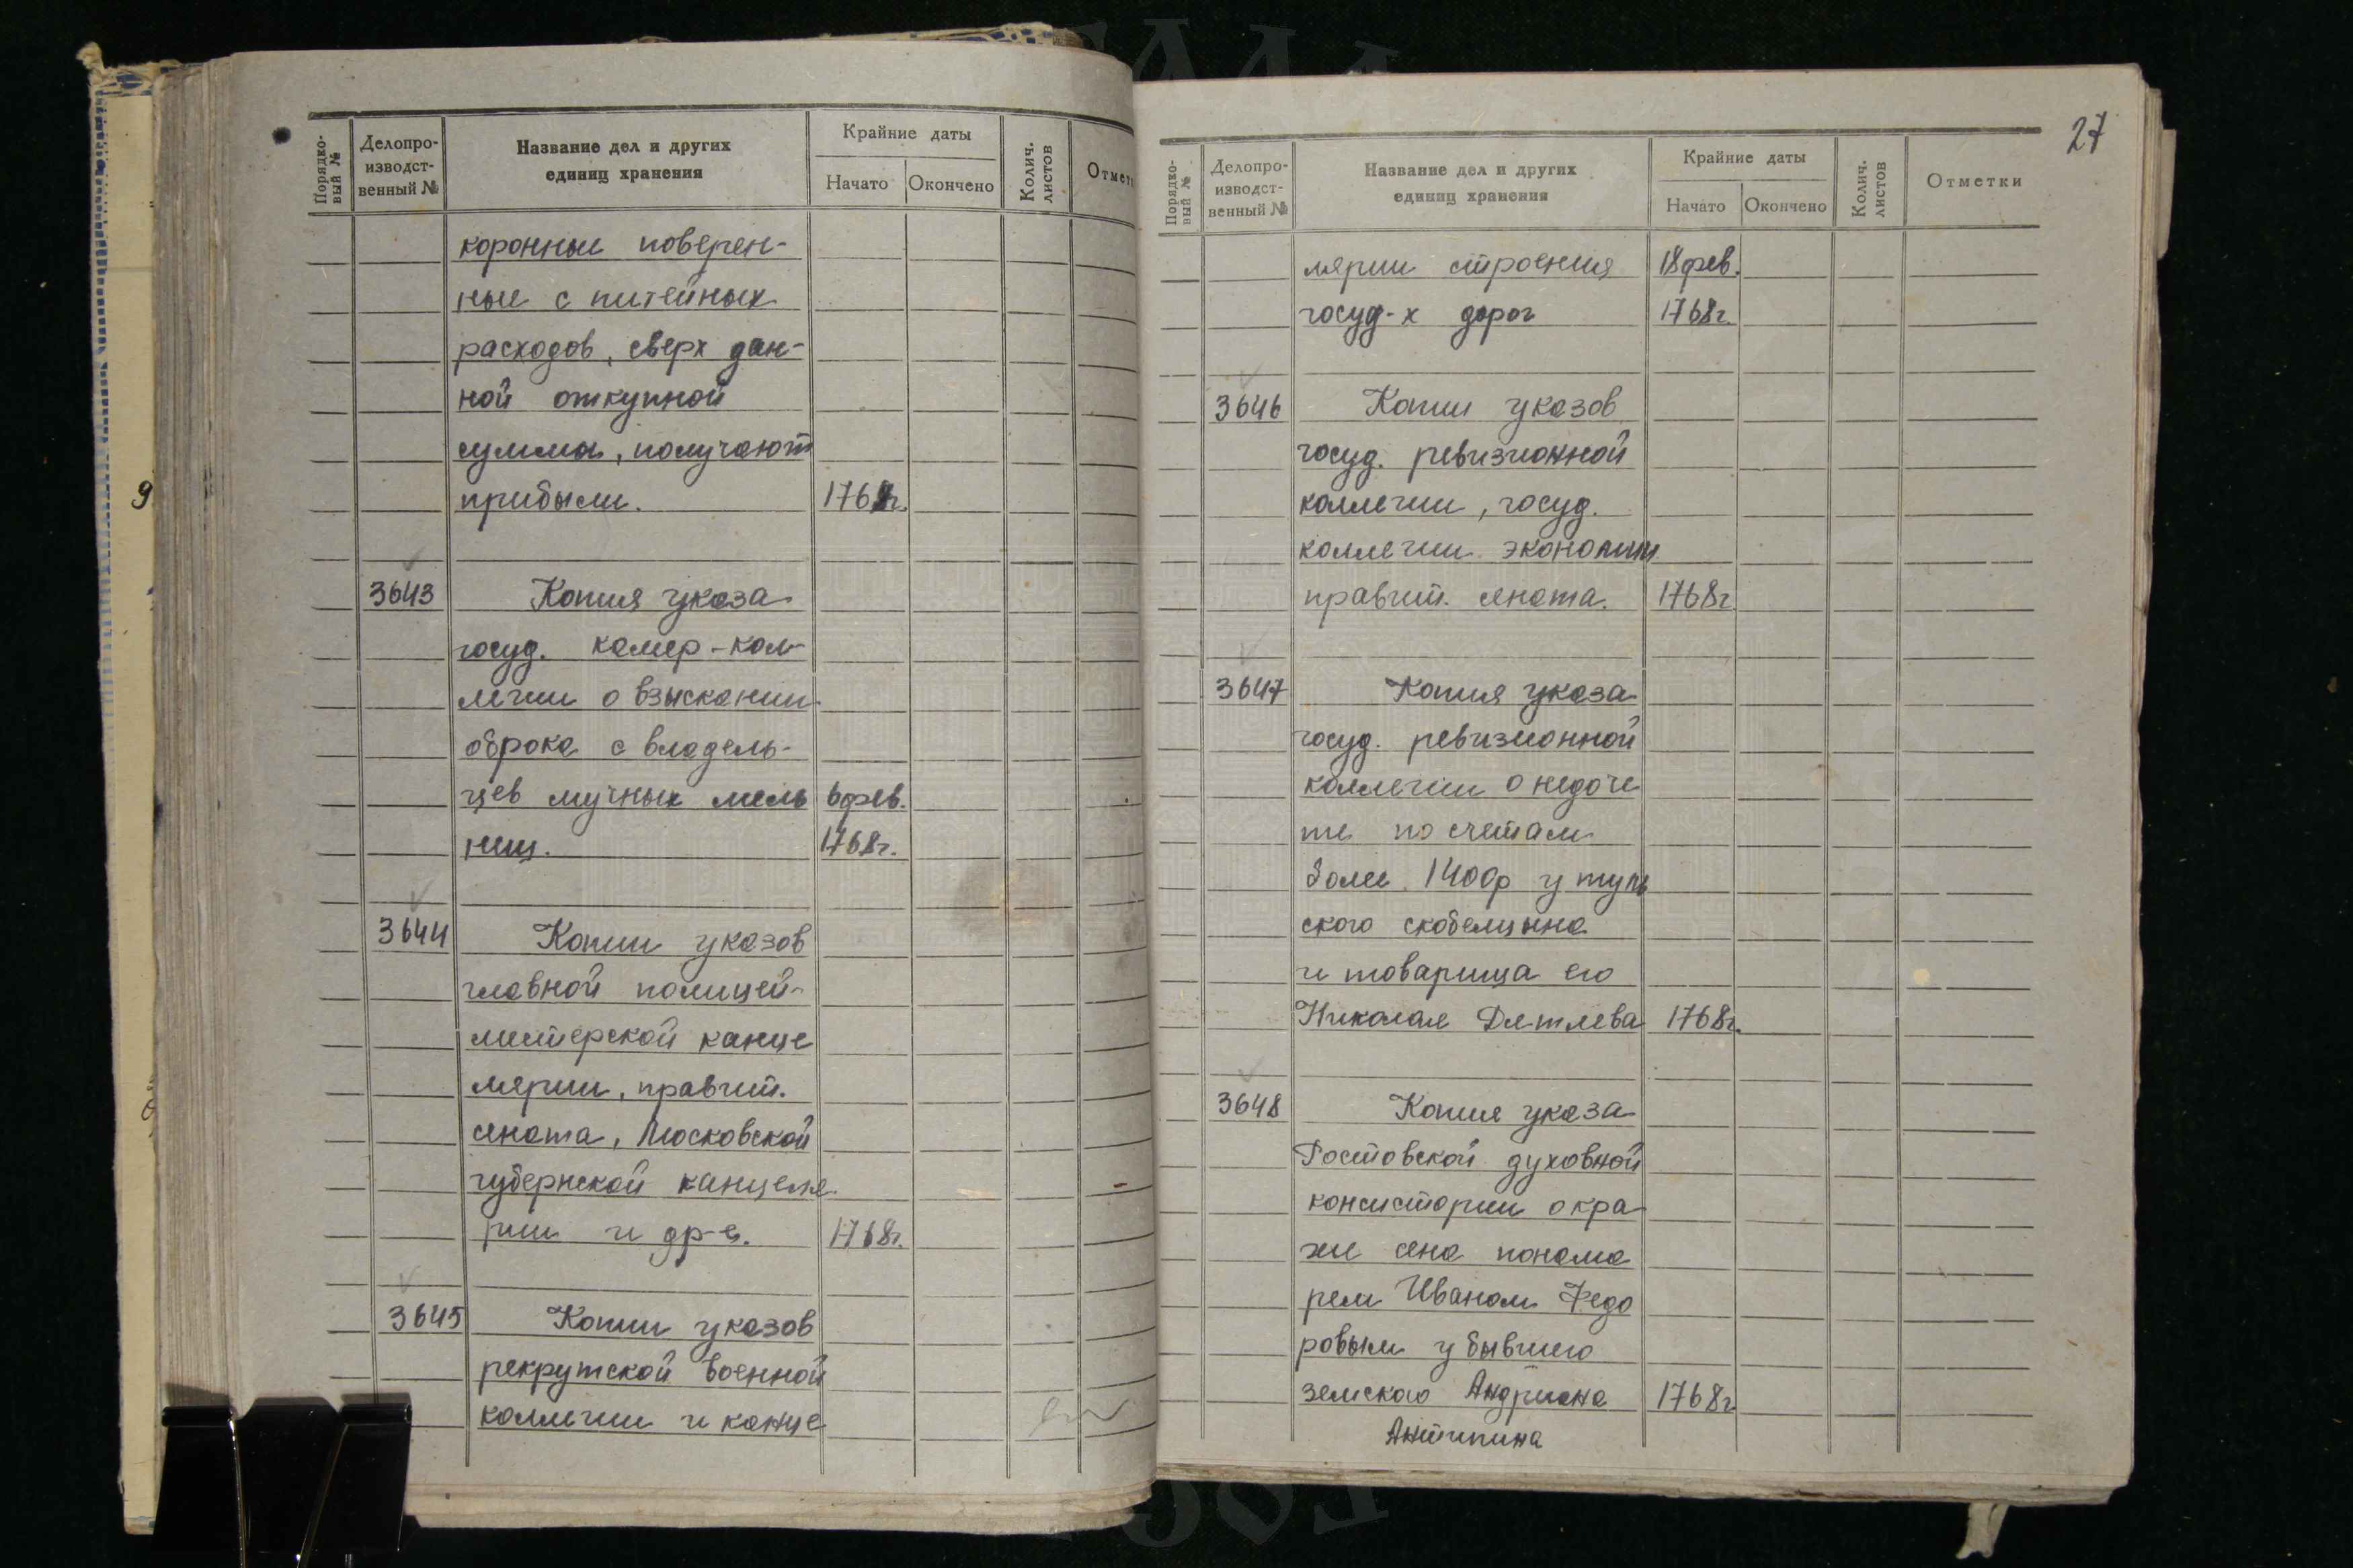 Порядко-
вый №
Делопро-
изводст-
венный №
Название дел и других
единиц хранения
Крайние даты
Начато
Окончено
Колич.
листов
Отметк
коронные поверен-
ные с питейных
расходов, сверх дан-
ной откупной
суммы, получают
прибыли. 1768г.
3643 Копия указа
госуд. камер-кол-
легии о взыскании
оброка с владель-
цев мучных мель 6 фев.
ниц. 1768г.
3644 Копии указов
главной полицей-
мстерской канце
лярии, правит.
сената, Московской
губернской канцеля
рии и др-е. 1768г.
3645 Копии указов
рекрутской военной
коллегии и канце
27
Порядко-
вый №
Делопро-
изводст-
венный №
Название дел и других
единиц хранения
Крайние даты
Начато
Окончено
Колич.
листов
Отметки
лярии строения 18 фев.
госуд-х дорог 1768г.
3646 Копии указов
госуд. ревизионной
коллегии, госуд.
коллегии экономии
правит. сената. 1768г.
3647 Копия указа
госуд. ревизионной
коллегии о недоче
те по счетам
более 1400р у туль
ского скобелцына
и товарища его
Николая Детлева 1768г.
3648 Копия указа
Ростовской духовной
консистории о кра
же сена понома
рем Иваном Федо
ровым у бывшего
земского Андриана 1768г.
Антипина